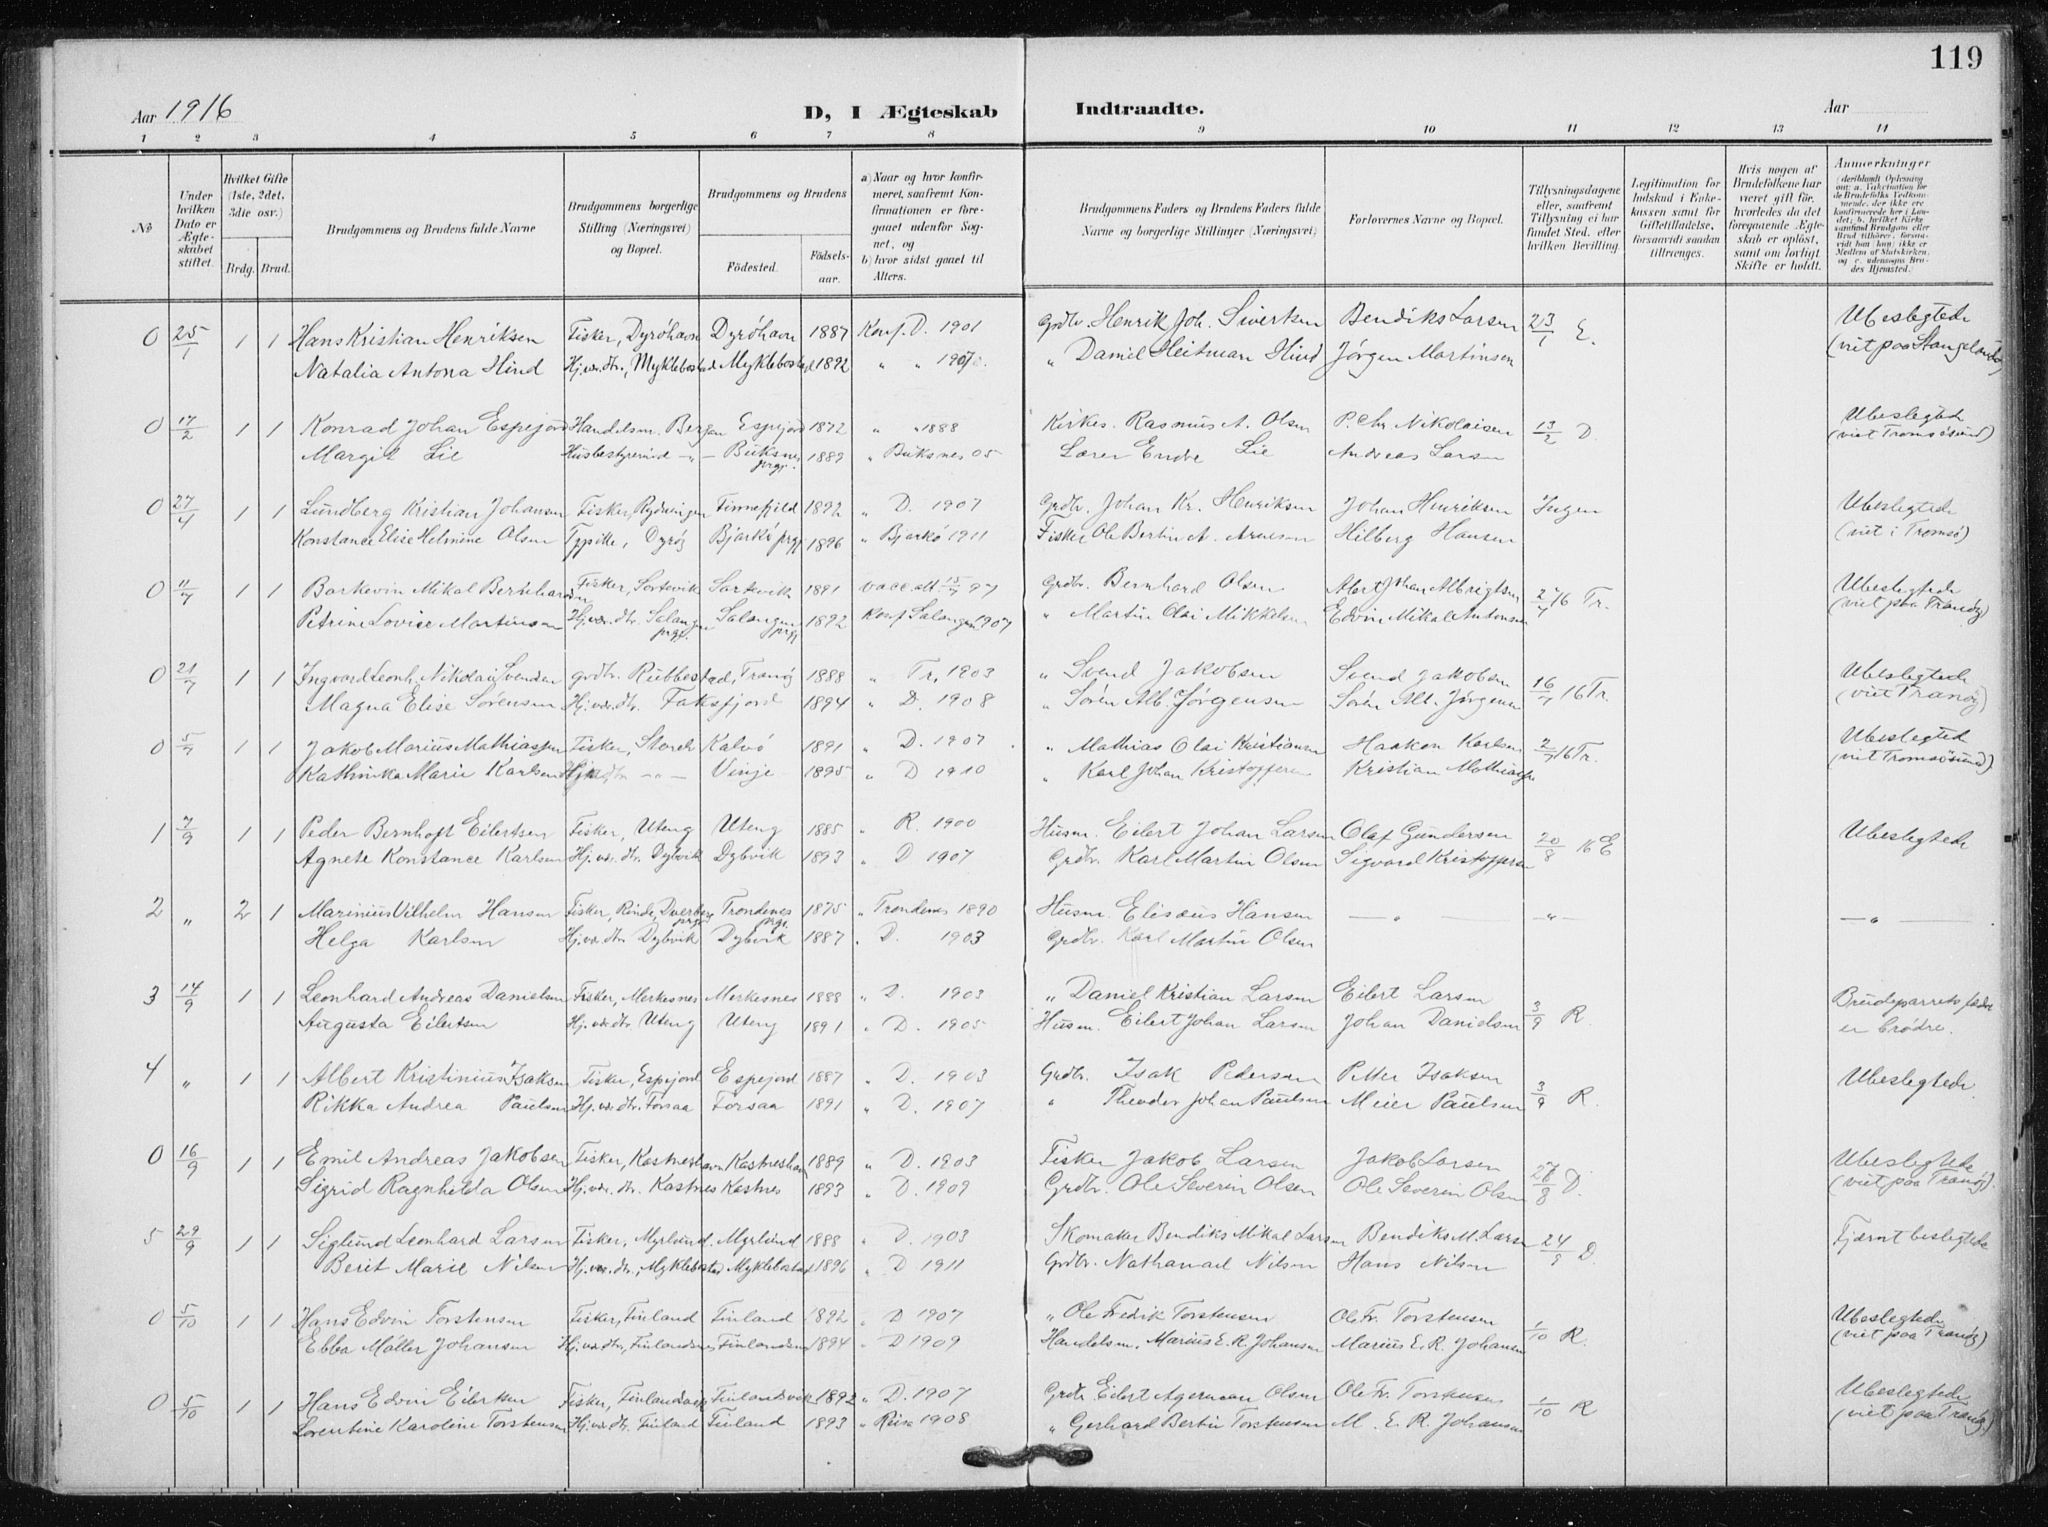 119
Aar 1916
D, I Ægteskab Indtraadte.
Aar
1 2 3 4 5 6 7 8 9 10 11 12 13 14
No
Under hvilken Dato er Ægteskabet stiftet.
Hvilket Gifte (1ste, 2det, 3die osv.)
Brdg. Brud.
Brudgommens og Brudens fulde Navne
Brudgommens borgerlige Stilling (Næringsvei) og Bopæl.
Brudgommens og Brudens
Födested. Födselsaar.
a) Naar og hvor konfirmeret, saafremt Konfirmationen er foregaaet udenfor Sognet, og
b) hvor sidst gaaet til Alters.
Brudgommens Faders og Brudens Faders fulde Navne og borgerlige Stillinger (Næringsvei)
Forlovernes Navne og Bopæl.
Tillysningsdagene eller, saafremt Tillysning ei har fundet Sted, efter hvilken Bevilling.
Legitimation for Indskud i Enkekassen samt for Giftetilladelse, forsaavidt saadan tiltrænges.
Hvis nogen af Brudefolkene har været gift för, hvorledes da det foregaaende Ægteskab er oplöst, samt om lovligt Skifte er holdt.
Anmerkninger
0 25/1 1 1 Hans Kristian Henriksen Fisker, Dyröhavn Dyröhavn 1887 Konf. D. 1901 Grdbr. Henrik Joh. Sivertsen Bendiks Larsen 23/1 E. Ubeslegtede
Natalia Antona Hind Hj.vær. dtr., Myklebostad Myklebostad 1892 " " 1907 " Daniel Heitman Hind Jørgen Martinsen (viet paa Stangelandet)
0 17/2 1 1 Konrad Johan Espejord Handelsm. Bergen Espejord 1872 " " 1888 Kirkes. Rasmus A. Olsen P. Chr. Nikolaisen 13/2 D. Ubeslegtede
Margit Lie Husbestyrerind -"- Buksnes prgj. 1889 " Buksnes 05 Lærer Endre Lie Andreas Larsen (viet Tromsösund)
0 27/4 1 1 Lundberg Kristian Johansen Fisker, Finnefjeld 1892 " D. 1907 Grdbr. Johan Kr. Henriksen Johan Henriksen Ingen Ubeslegtede
Konstance Elise Helmine Olsen Dyrøy Bjarkö prgj. 1896 " Bjarkö 1911 Fisker Ole Bertin A. Arnesen Hilberg Hansen (viet i Tromsö)
0 11/7 1 1 Barkevin Mikal Bernhardsen Fisker, Sörtevik Sortevik 1891 vacc. att. 15/7 97 Grdbr. Bernhard Olsen Albert Johan Albrigtsen 2/7 16 Tr. Ubeslegtede
Petrine Lovise Martinsen Hj.vær. dtr. Salangen prgj. Salangen prgj. 1892 Konf. Salangen 1907 " Martin Olai Mikkelsen Edvin Mikal Antonsen (viet paa Tranöy)
0 21/7 1 1 Ingvard Leonh. Nikolai Svendsen grdbr. Rubbestad, Tranöy 1888 " Tr. 1903 " Svend Jakobsen Svend Jakobsen 16/7 16 Tr. Ubeslegtede
Magna Elise Sörensen Hj.vær. dtr. Faksfjord 1894 " D. 1908 " Sören Alb. Jørgensen Sören Alb. Jørgensen (viet Tranöy)
0 5/7 1 1 Jakob Marius Mathiassen Fisker, Kalvö 1891 " D. 1907 " Mathias Olai Kristiansen Haakon Karlsen 2/7 16 Tr. Ubeslegtede
Kathinka Marie Karlsen -"- Vinje 1895 " D 1910 " Karl Johan Kristoffersen Kristian Mathiassen (viet Tromsösund)
1 7/9 1 1 Peder Bernhoft Eilertsen Fisker, Uteng Uteng 1885 " R. 1900 Husm. Eilert Johan Larsen Olaf Gundersen 20/8 16 E Ubeslegtede
Agnete Konstance Karlsen Hj.vær. dtr. Dybvik Dybvik 1893 " D 1907 Grdbr. Karl Martin Olsen Sigvard Kristoffersen
2 " 2 1 Marinius Vilhelm Hansen Fisker, Rinde, Dverberg prgj. Trondenes prgj. 1875 " Trondenes 1890 Husm. Elisæus Hansen — " — -"- — " —
Helga Karlsen Hj.vær. dtr. Dybvik Dybvik 1887 " D. 1903 Grdbr. Karl Martin Olsen
3 14/9 1 1 Leonhard Andreas Danielsen Fisker, Merkesnes Merkesnes 1888 " D. 1903 " Daniel Kristian Larsen Eilert Larsen 3/9 R. Brudeparrets fædre
Augusta Eilertsen Hj.vær. dtr. Uteng Uteng 1891 " D. 1905 Husm. Eilert Johan Larsen Johan Danielsen er brödre.
4 " 1 1 Albert Kristinius Isaksen Fisker, Espejord Espejord 1887 " D. 1903 Grdbr. Isak Pedersen Petter Isaksen 3/9 R. Ubeslegtede
Rikka Andrea Paulsen Hj.vær. dtr. Forsaa Forsaa 1891 " D. 1907 " Theodor Johan Paulsen Meier Paulsen
0 16/9 1 1 Emil Andreas Jakobsen Fisker, Kastneshavn Kastneshavn 1889 " D. 1903 Fisker Jakob Larsen Jakob Larsen 27/8 D. Ubeslegtede
Sigrid Ragnhilda Olsen Hj.vær. dtr. Kastnes Kastnes 1893 " D. 1909 Grdbr. Ole Severin Olsen Ole Severin Olsen (viet paa Tranöy).
5 29/9 1 1 Siglund Leonhard Larsen Fisker, Myrlund. Myrlund 1888 " D. 1903 Skomaker Bendiks Mikal Larsen Bendiks M. Larsen 24/9 D. Fjærnt beslegtede
Berit Marie Nilsen Hj.vær. dtr., Myklebostad Myklebostad 1896 " D 1911 Grdbr. Nathanael Nilsen Hans Nilsen
0 5/10 1 1 Hans Edvin Torstensen Fisker, Finland Finland 1892 " D 1907 " Ole Fredik Torstensen Ole Fr. Torstensen 1/10 R. Ubeslegtede
Ebba Möller Johansen Hj.vær. dtr, Finlandsnes Finlandsnes 1894 " D 1909 Handelsm. Marius E. R. Johansen Marius E. R. Johansen (viet paa Tranöy)
0 5/10 1 1 Hans Edvin Eilertsen Fisker, Finlandsvik 1892 " D. 1907 Grdbr. Eilert Ole Fr. Torstensen 1/10 R Ubeslegtede
Lorentine Karoline Torstensen Hj.vær. dtr. Finland Finland 1893 " 1908 " Gerhard Bertin Torstensen M. E. R. Johansen (viet paa Tranöy.)